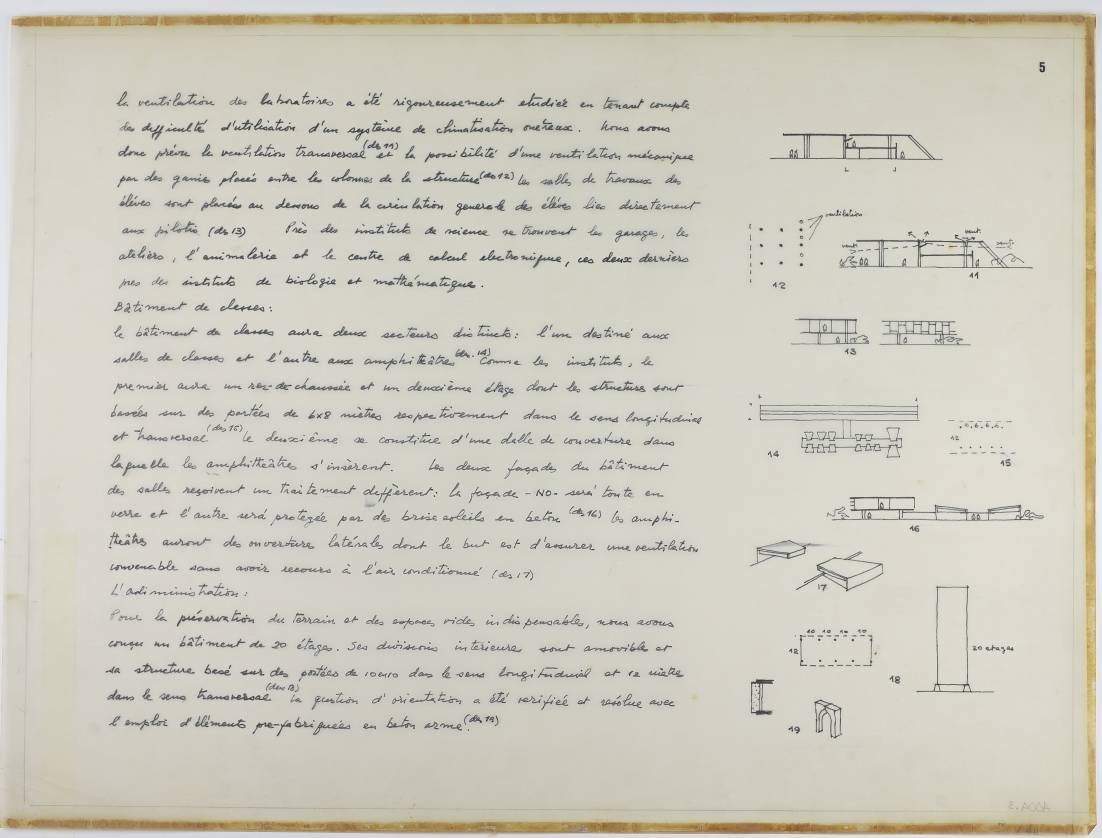 5
la ventilation des laboratoires a été rigoureusement etudiée en tenant compte
des difficultés d'utilisation d'un système de climatisation onéreux. Nous avons
donc prévu la ventilation transversal (des 11) et la possibilité d'une ventilation mécanique
par des gaines placés entre les colonnes de la structure (des 12) les salles de travaux des
élèves sont placées au dessous de la circulation generale des élèves lies directement
aux pilotis (des 13) Près des instituts de science se trouvent les garages, les
ateliers, l'animalerie et le centre de calcul electronique, ces deux derniers
pres des instituts de biologie et mathématique.
Bâtiment de classes:
le bâtiment de classes aura deux secteurs distincts: l'un destiné aux
salles de classes et l'autre aux amphithéâtres (des. 14) Comme les instituts, le
premier aura un rez-de chaussée et un deuxième étage dont les structure sont
basées sur des portées de 6x8 mètres respectivement dans le sens longitudinas
et transversal (des 15) le deuxième se constitue d'une dalle de couverture dans
laquelle les amphithéâtres s'insèrent. Les deux façades du bâtiment
des salles reçoivent un traitement different: la façade - NO - será toute en
verre et l'autre será protegée par des brise soleils en beton (des 16) les amphi-
théâtres auront des ouverture latérales dont le but est d'assurer une ventilation
convenable sans avoir recours à l'air conditionné (des 17)
L'administration:
Pour la préservation du terrain et des espaces vides indispensables, nous avons
conçu un bâtiment de 20 étages. Ses divisions interieures sont amovibles et
sa structure basé sur des portées de 10x10 dans le sens longitudinal et 12 mètres
dans le sens transversal (des 18) la question d'orientation a été verifiée et résolue avec
l'emploi d'éléments pre-fabriquées en beton arme. (des 19)
ventilation
12
vent.
vent.
vent
11
13
14
12
15
16
17
10 10 10 10
12
18
20 etages
19